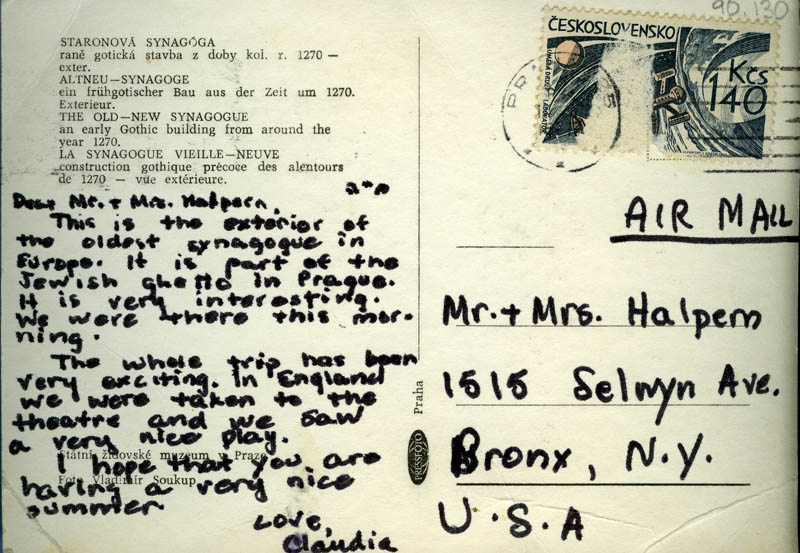 90.130
ČESKOSLOVENSKO
Kčs
140
STARONOVÁ SYNAGÓGA
raně gotická stavba z doby kol. r. 1270 —
exter.
ALTNEU—SYNAGOGE
ein frühgotischer Bau aus der Zeit um 1270.
Exterieur.
THE OLD—NEW SYNAGOGUE
an early Gothic building from around the
year 1270.
LA SYNAGOGUE VIEILLE—NEUVE
construction gothique précoce des alentours
de 1270 — vue extérieure.
Dear Mr. + Mrs. Halpern,
This is the exterior of
the oldest synagogue in
Europe. It is part of the
Jewish ghetto in Prague.
It is very interesting.
We were there this mor-
ning.
The whole trip has been
very exciting. In England
we were taken to the
theatre and we saw
a very nice play.
Státní židovské muzeum v Praze
I hope that you are
having a very nice
Foto Vladimír Soukup
summer
Love,
Claudia
Praha
PRESSFOTO
AIR MAIL
Mr. + Mrs. Halpern
1515 Selwyn Ave.
Bronx, N.Y.
U.S.A